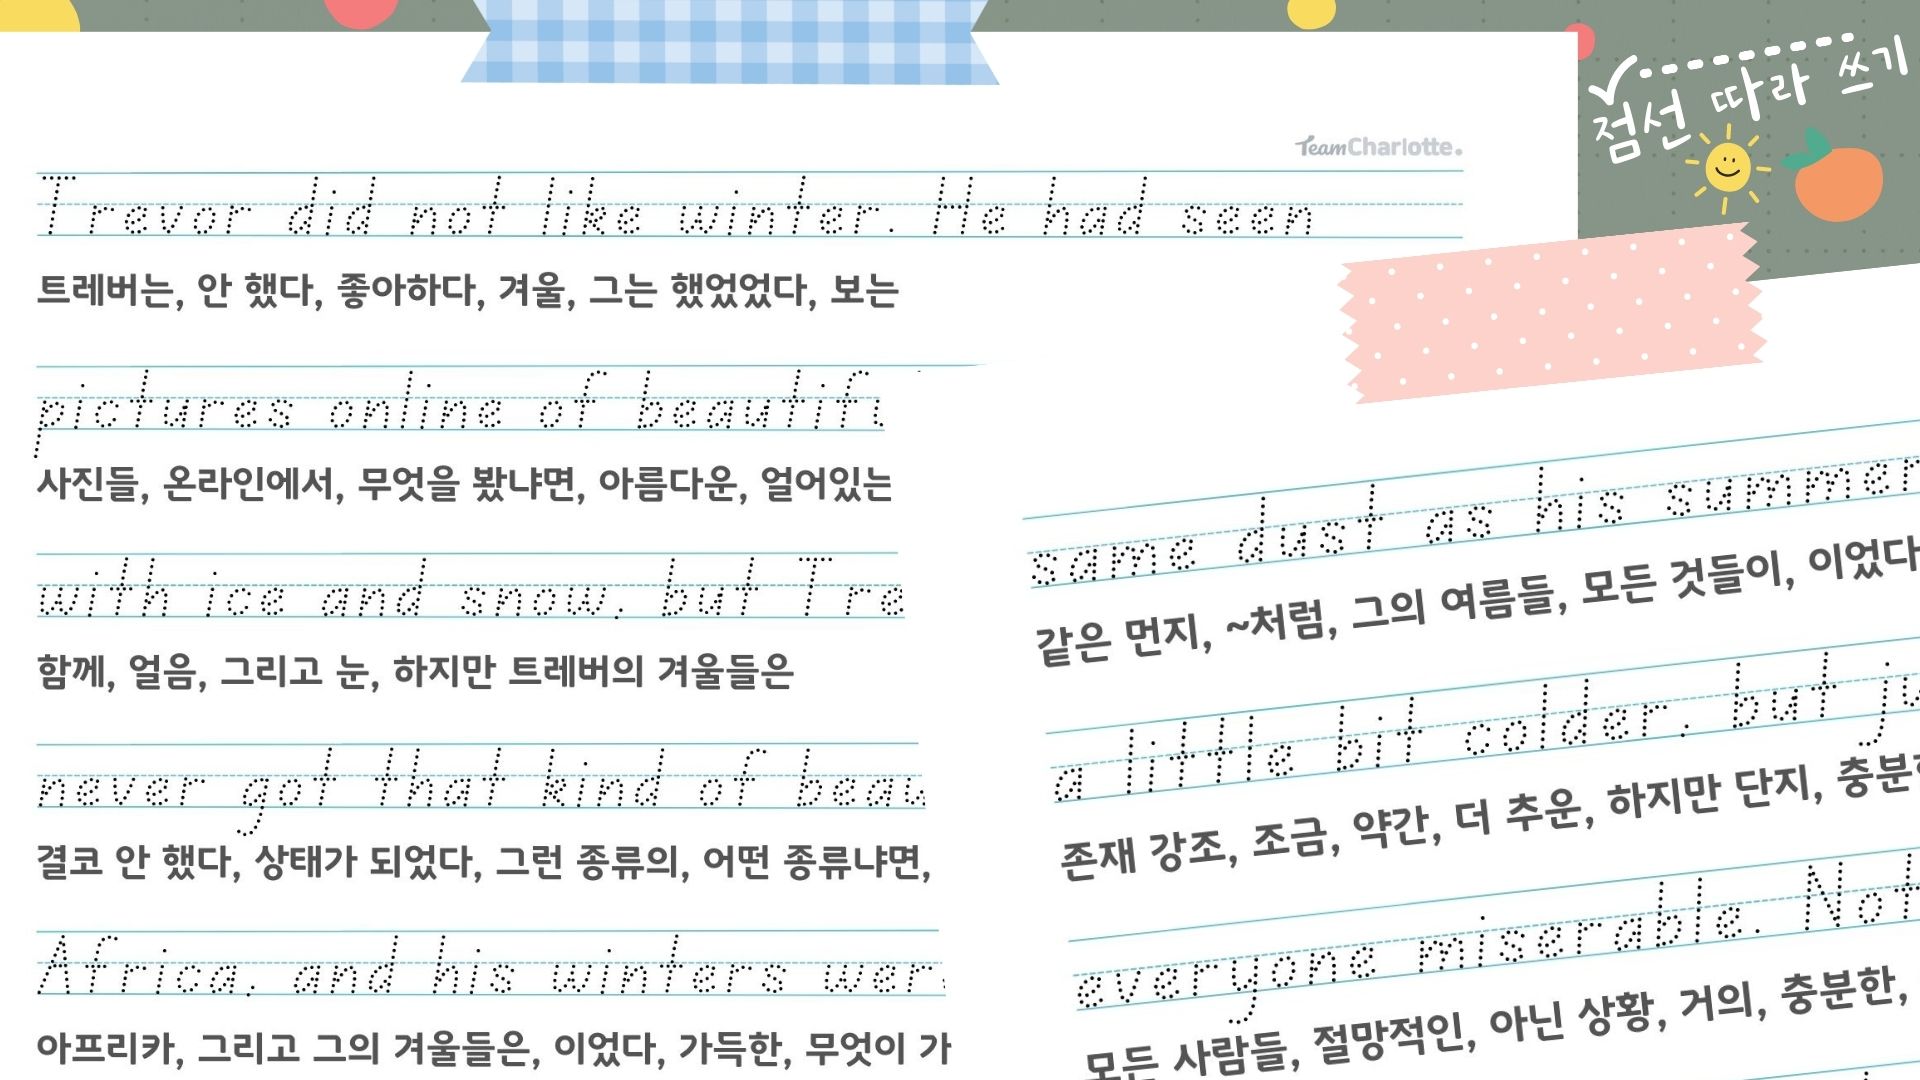 점선 따라 쓰기
TeamCharlotte.
Trevor did not like winter. He had seen
트레버는, 안 했다, 좋아하다, 겨울, 그는 했었었다, 보는
pictures online of
사진들, 온라인에서, 무엇을 봤냐면, 아름다운, 얼어있는
with ice and snow, but
함께, 얼음, 그리고 눈, 하지만 트레버의 겨울들은
never got that kind of
결코 안 했다, 상태가 되었다, 그런 종류의, 어떤 종류냐면,
Africa, and his winters
아프리카, 그리고 그의 겨울들은, 이었다, 가득한, 무엇이 가
same dust as his summer
같은 먼지, ~처럼, 그의 여름들, 모든 것들이, 이었다
a little bit colder, but
존재 강조, 조금, 약간, 더 추운, 하지만 단지,
everyone miserable. Not
모든 사람들, 절망적인, 아닌 상황, 거의, 충분한,